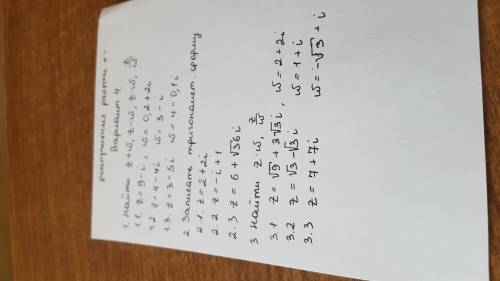 Контрольная работа №1
Вариант 4.
1. Найти z+w, z-w, z·w, z/w
1.1. z=9-i, w=0,2+2i
1.2 z=4-4i w=3-i
1.3. z=3-5i w=4-0,1i
2. Записать тригономет. форму
2.1. z=2+2i
2.2 z=-i+1
2.3 z=6+√36i
3 Найти z·w, z/w
3.1 z=√9+3√3i, w=2+2i
3.2 z=√3-√3i w=1+i
3.3 z=7+7i w=-√3+i